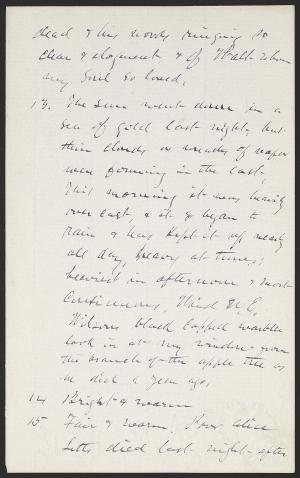 dead & his words ringing so
clear & eloquent, & of Walt whom
my soul so loved.
13. The sun went down in a
sea of gold last night, but
thin clouds or wreaths of vapor
were forming in the east.
This morning it was heavily
overcast, & at 8 began to
rain & has kept it up nearly
all day, heavy at times;
heaviest in afternoon & most
continuous, Wind N.E.
Wilsons black capped warbler
look in at my window from
the branch of the apple tree as
he did a year ago.
14 Bright & warm
15 Fair & warm. Poor Alice
last night - after